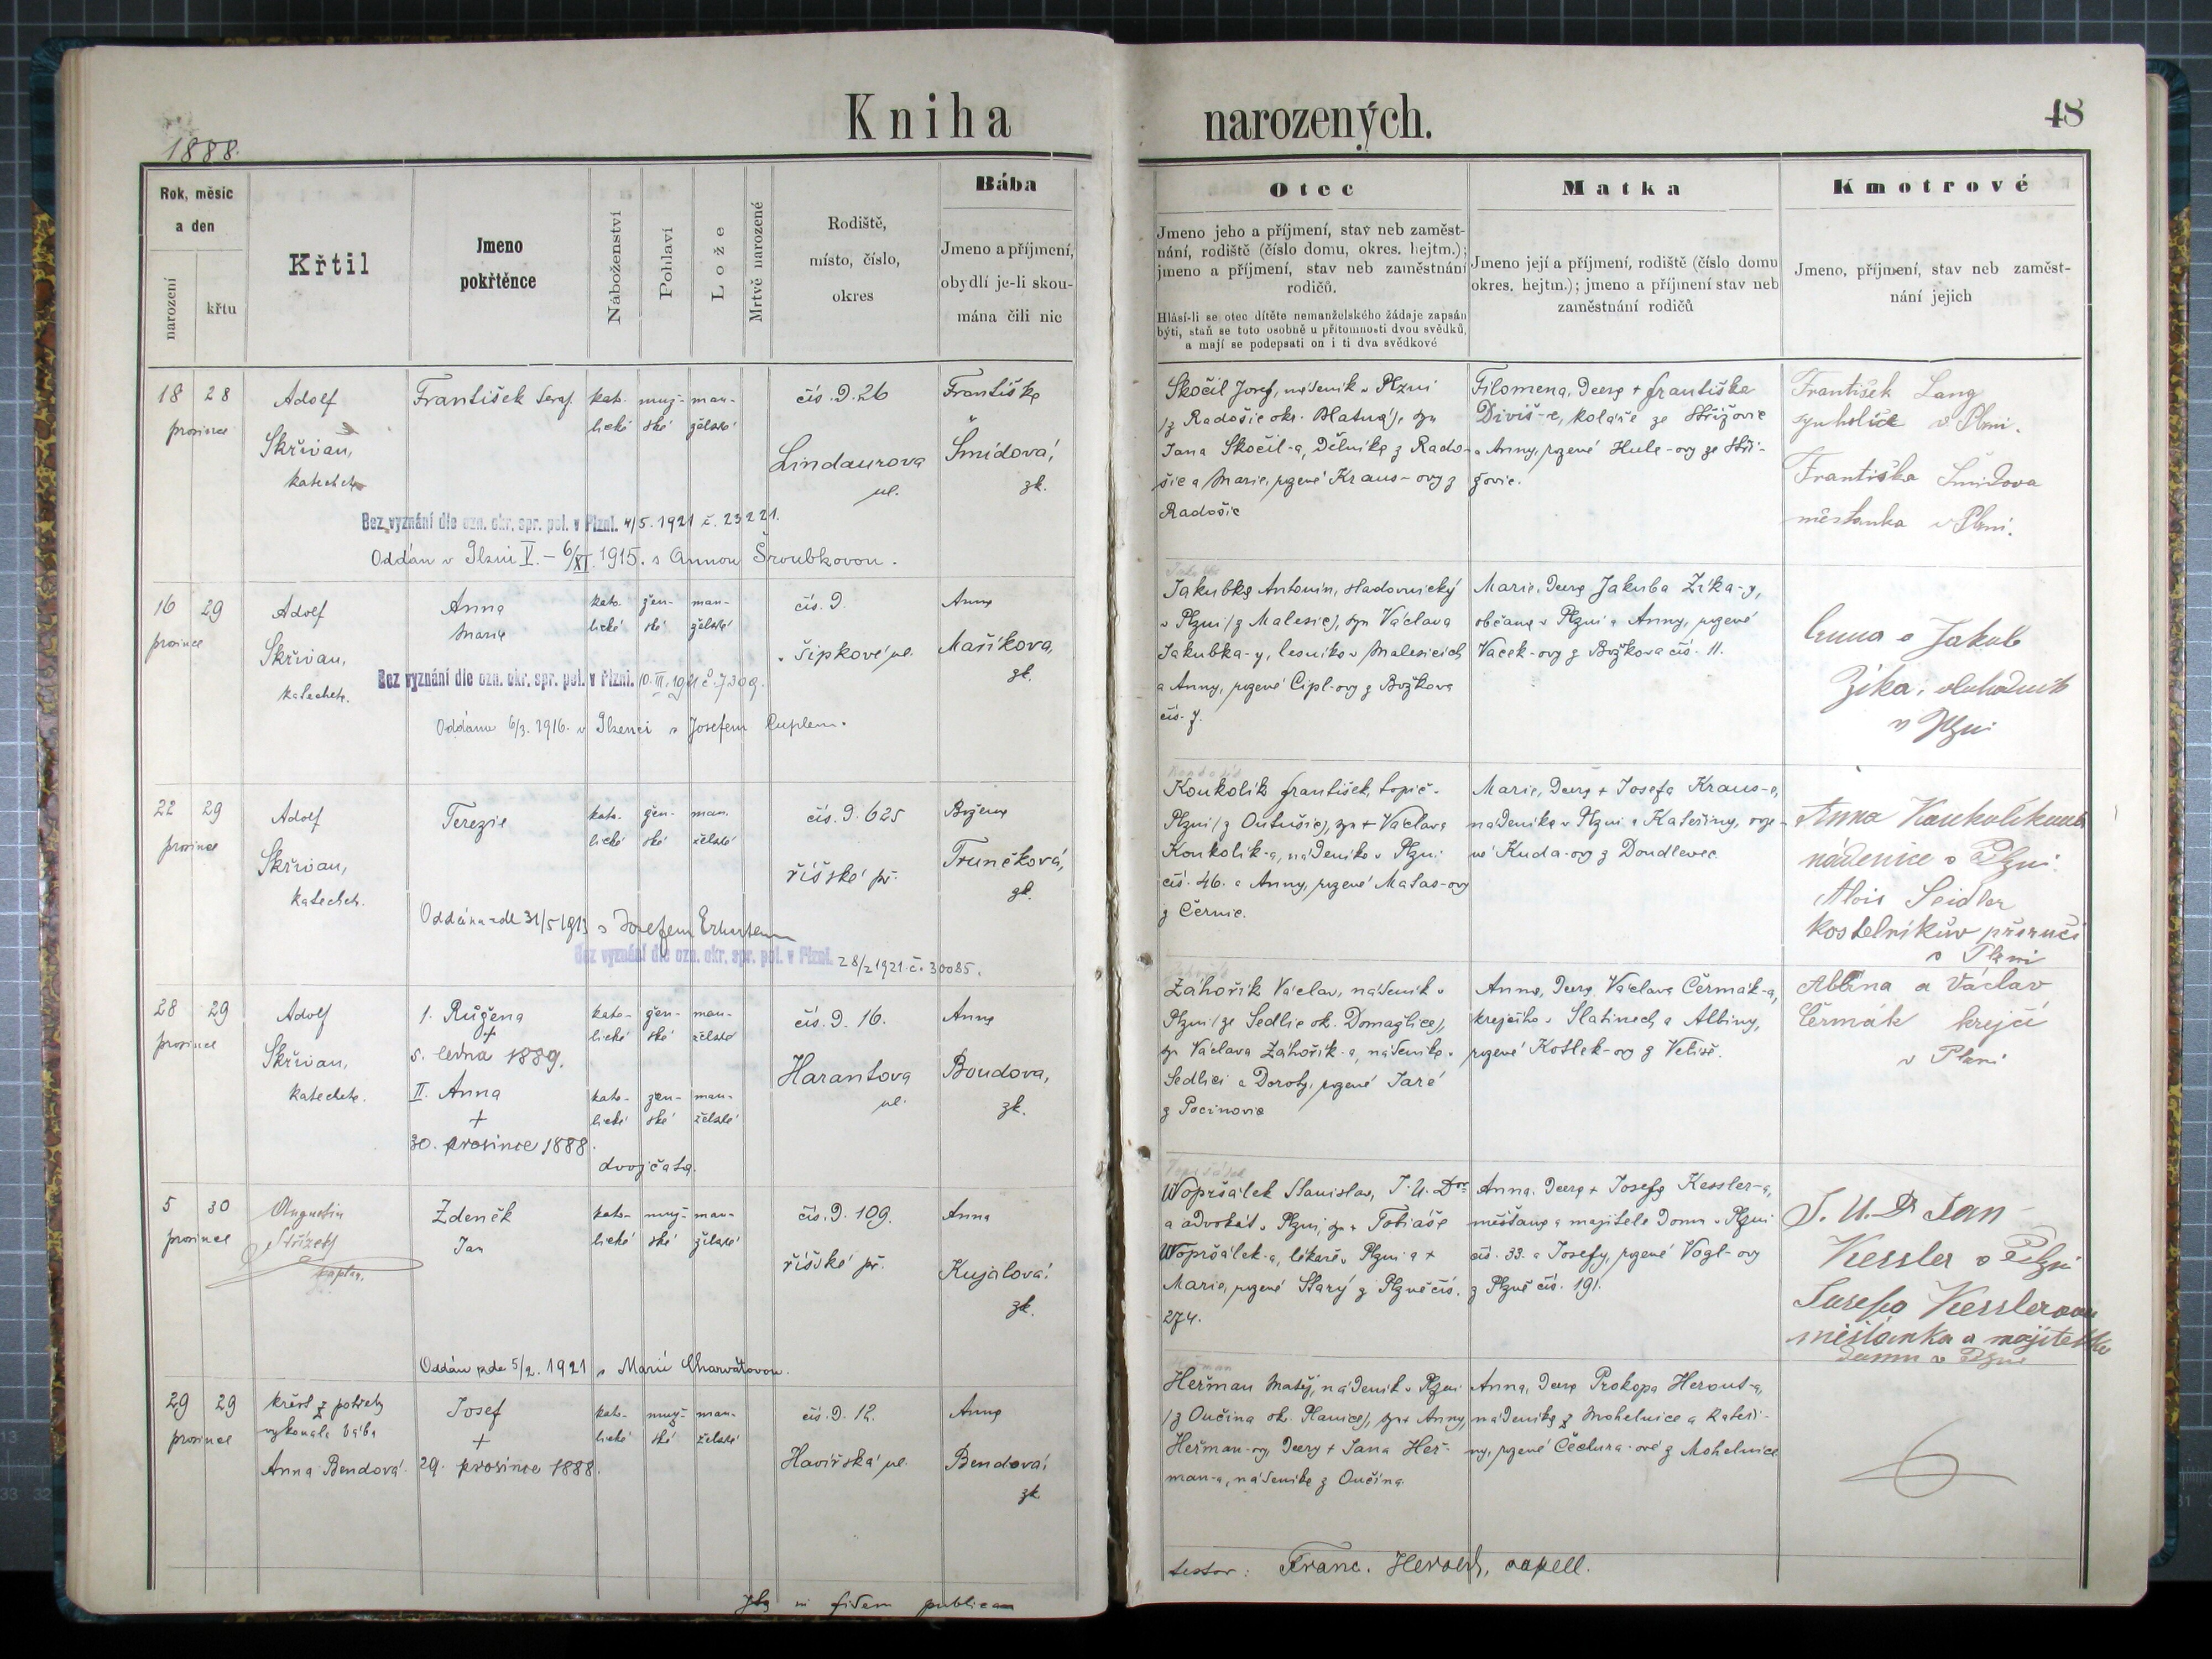 Kniha
narozených.
48
1888.
Rok, měsíc
a den
narození
křtu
Křtil
Jmeno
pokřtěnce
Náboženství
Pohlaví
Lože
Mrtvě narozené
Rodiště,
místo, číslo,
okres
Bába
Jmeno a příjmení,
obydlí je-li skou-
mána čili nic
Otec
Jmeno jeho a příjmení, stav neb zaměst-
nání, rodiště (číslo domu, okres. hejtm.);
jmeno a příjmení, stav neb zaměstnání
rodičů.
Hlásí-li se otec dítěte nemanželského žádaje zapsán
býti, staň se toto osobně u přítomnosti dvou svědků,
a mají se podepsati on i ti dva svědkové
Matka
Jmeno její a příjmení, rodiště (číslo domu
okres. hejtm.); jmeno a příjmení stav neb
zaměstnání rodičů
Kmotrové
Jmeno, příjmení, stav neb zaměst-
nání jejich
18 28
prosince
Adolf
Skřivan,
katecheta
František Seraf.
kato-
lické
muž-
ské
man-
želské
čís. d. 26
Lindaurova
ul.
Františka
Šmídová,
zk.
Bez vyznání dle ozn. okr. spr. pol. v Plzni. 4/5. 1921 č. 23221.
Oddán v Plzni V. – 6/XI. 1915. s Annou Šroubkovou.
Skočil Josef, nádeník v Plzni
/z Radošic okr. Blatná/, syn
Jana Skočil-a, dělníka z Rado-
šic a Marie, rozené Kraus-ovy z
Radošic
Filomena, dcera + Františka
Diviš-e, koláře ze Střížovic
a Anny, rozené Hule-ovy ze Stří-
žovic.
František Lang
v Plzni.
Františka Šmídova
měšťanka v Plzni.
16 29
prosince
Adolf
Skřivan,
katecheta.
Anna
Marie
kato-
lické
žen-
ské
man-
želské
čís. d.
v Šipkové ul.
Anna
Maříkova,
zk.
Bez vyznání dle ozn. okr. spr. pol. v Plzni. 10. III. 1921 č. 7309.
Oddána 6/3. 1916. v Plzenci s Josefem
Jakubka Antonín,
v Plzni /z Malesic/, syn Václava
Jakubka-y, lesníka v Malesicích
a Anny, rozené Cipl-ovy z Božkova
čís. 7.
Marie, dcera Jakuba Zíka-y,
občana v Plzni a Anny, rozené
Vacek-ovy z Božkova čís. 11.
Anna a Jakub
Zíka,
v Plzni
22 29
prosince
Adolf
Skřivan,
katecheta.
Terezie
kato-
lické
žen-
ské
man-
želské
čís. d. 625
říšské př.
Božena
Trunečková,
zk.
Oddána zde 31/5 1913 s Josefem
Bez vyznání dle ozn. okr. spr. pol. v Plzni. 28/2 1921. č. 30085.
Koukolík František, topič v
Plzni /z Outušic/, syn + Václava
Koukolík-a, nádeníka v Plzni
čís. 46. a Anny, rozené Matas-ovy
z Černic.
Marie, dcera + Josefa Kraus-e,
nádeníka v Plzni a Kateřiny, roze-
né Kuda-ovy z Doudlevec
Anna Koukolíkova
nádenice v Plzni
Alois Seidler
kostelníkův příručí
v Plzni
28 29
prosince
Adolf
Skřivan,
katecheta.
1. Růžena
+
5. ledna 1889.
II. Anna
+
30. prosince 1888.
kato-
lické
žen-
ské
man-
želské
kato-
lické
žen-
ské
man-
želské
dvojčata.
čís. d. 16.
Harantova
ul.
Anna
Boudova,
zk.
Záhořík Václav, nádeník v
Plzni /ze Sedlic ok. Domažlice/,
syn Václava Záhořík-a, nádeníka v
Sedlici a Doroty, rozené Jaré
z Pocinovic
Anna, dcera Václava Čermák-a,
krejčího v Slatinech a Albiny,
rozené Kotlek-ovy z Veliše.
Albina a Václav
Čermák krejčí
v Plzni
5 30
prosince
Augustin
Střízek
kaplan.
Zdeněk
Jan
kato-
lické
muž-
ské
man-
želské
čís. d. 109.
říšské př.
Anna
Kujalová,
zk.
Oddán zde 5/2. 1921 s Marií Charvátovou.
Wopršálek Stanislav, J. U. Dor
a advokát v Plzni, syn + Tobiáše
Wopršálek-a, lékaře v Plzni a +
Marie, rozené Starý z Plzně čís.
274.
Anna, dcera + Josefa Kessler-a,
měšťana a majitele domu v Plzni
čís. 33. a Josefy, rozené Vogl-ovy
z Plzně čís. 191.
J. U. Dr Jan
Kessler v Plzni
Josefa Kesslerova
měšťanka a majitelka
domu v Plzni
29 29
prosince
křest z potřeby
vykonala bába
Anna Bendová.
Josef
+
29. prosince 1888.
kato-
lické
muž-
ské
man-
želské
čís. d. 12.
Havířská ul.
Anna
Bendová,
zk.
Heřman Matěj, nádeník v Plzni
/z Oučína ok. Planice/, syn Anny
Heřman-ovy, dcery + Jana Heř-
man-a, nádeníka z Oučína.
Anna, dcera Prokopa Herout-a,
nádeníka z Mohelnice a Kateři-
ny, rozené Čečlura-ové z Mohelnice
testor: Franc. Herold, capell.
in fidem publicam